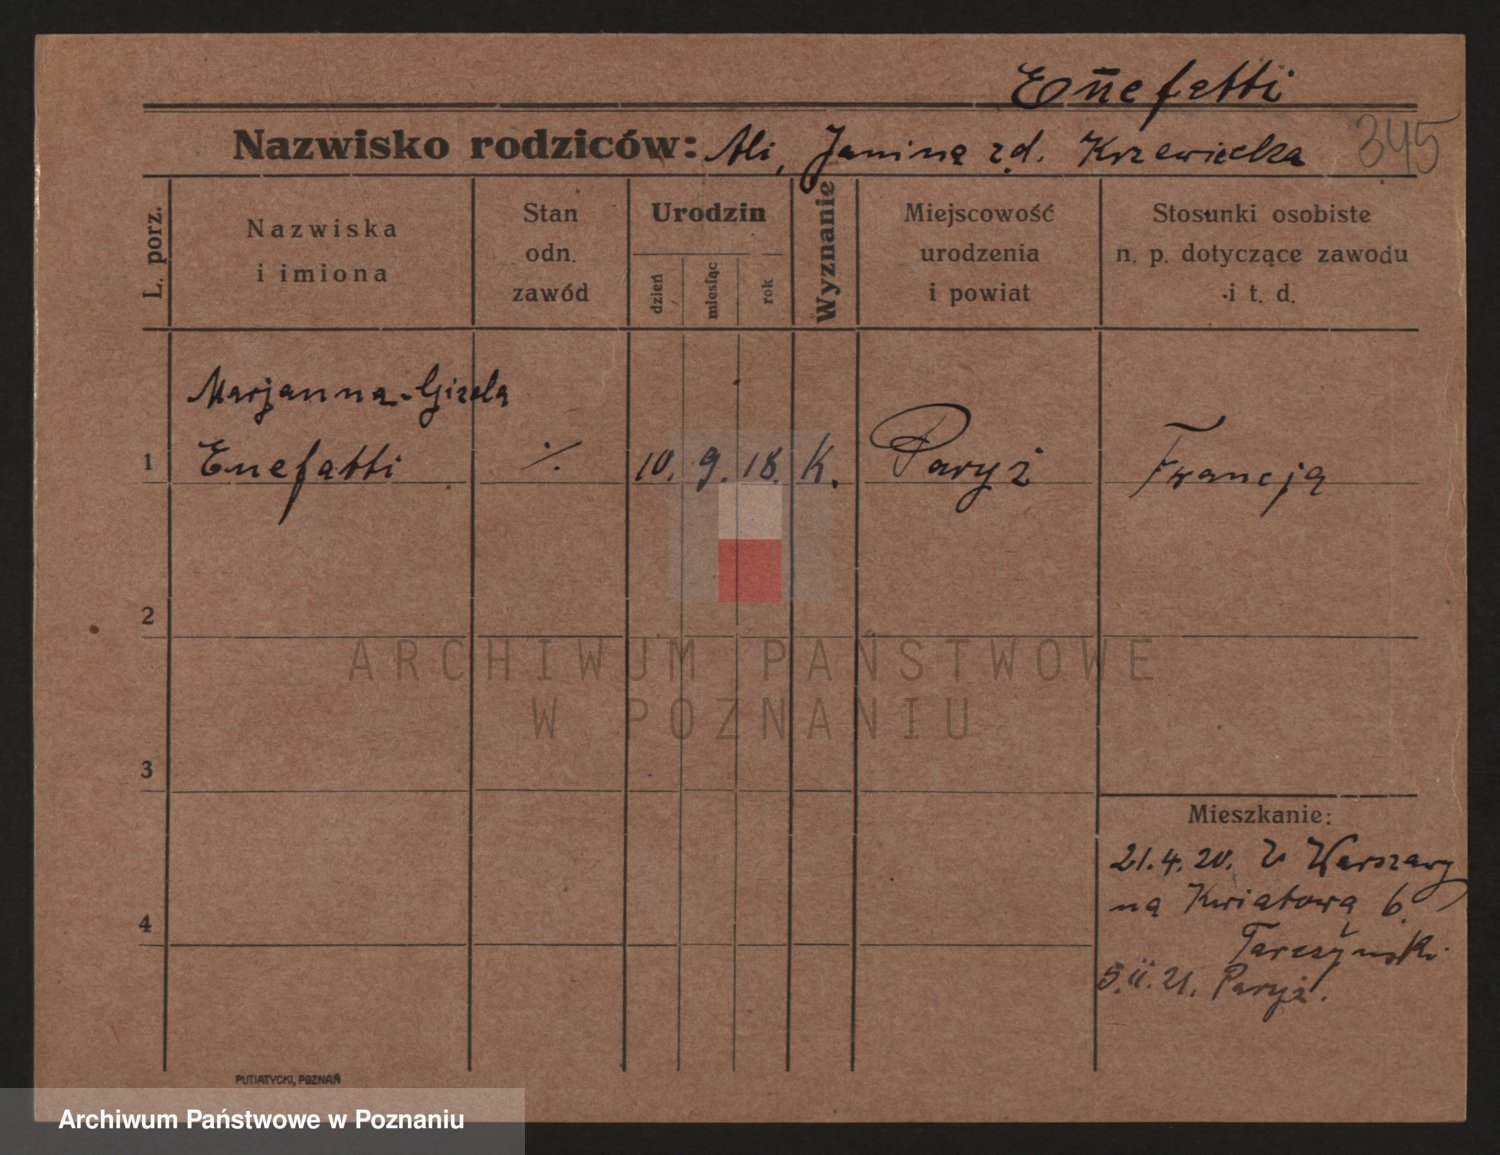 Enefatti
Nazwisko rodziców: Ali, Janina zd. Krzewiecka 345
L. porz.
Nazwiska
i imiona
Stan
odn.
zawód
Urodzin
dzień
miesiąc
rok
Wyznanie
Miejscowość
urodzenia
i powiat
Stosunki osobiste
n. p. dotyczące zawodu
i t. d.
Marjanna-Gizela
1 Enefatti ./. 10. 9. 18. K. Paryż Francja
2
3
4
Mieszkanie:
21.4.20. z Warszawy
na Kwiatową 6.
Tarczyński
5.II.21. Paryż.
PUTIATYCKI, POZNAŃ
ARCHIWUM PAŃSTWOWE
W POZNANIU
Archiwum Państwowe w Poznaniu